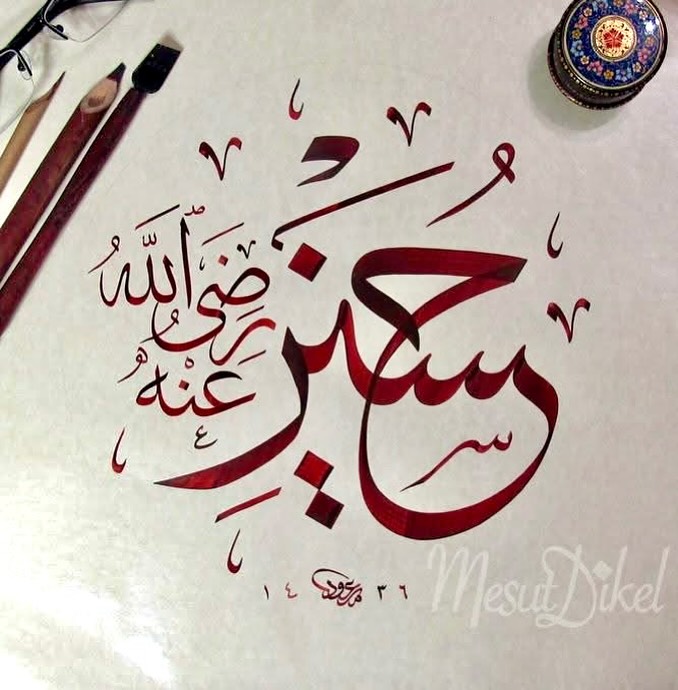 حُسَيْنِ
رَضِىَ اللّٰهُ
عَنْهُ
١٤ مسعود ٣٦
MesutDikel